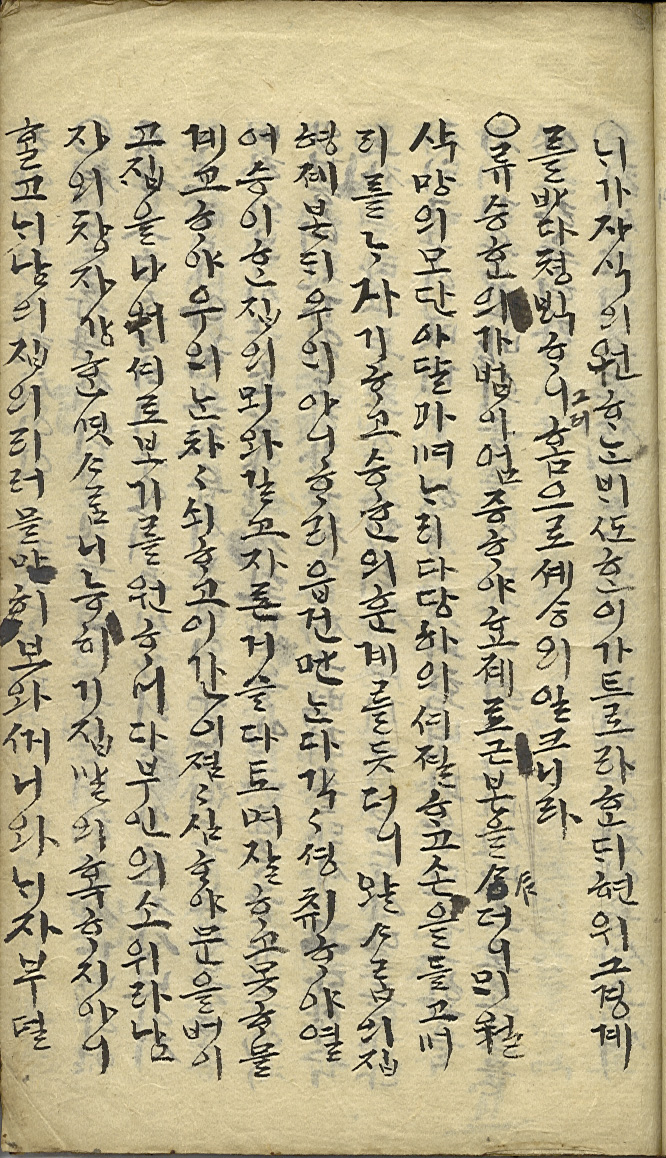 니가자식의원ᄒᆞᆫᄂᆞᆫᄇᆡ선ᄒᆞᆫ이가트로라ᄒᆞᆫᄃᆡ현위그경계
를바다졍ᄇᆡᆨᄒᆞ니그ᄃᆡ홈으로셰승의일ᄏᆞ니라
○류승ᄒᆞᆫ의가법이엄즁ᄒᆞ야효졔로근본을ᄉᆞᆷ더니ᄆᆡ월
삭망의모단아달마며ᄂᆞ리다당하의셔졀ᄒᆞ고손을들고머
리를ᄂᆞ자기ᄒᆞ고승ᄒᆞᆫ의훈계를듯더니왈ᄉᆞᄅᆞᆷ의집
형졔본ᄃᆡ우의아니ᄒᆞ리읍건만는다각각셩취ᄒᆞ야열
어승이ᄒᆞᆫ집의뫼와갈고자른거슬다토며잘ᄒᆞ고못ᄒᆞ믈
계고ᄒᆞ야우의는차차쇠ᄒᆞ고이간이졈졈심ᄒᆞ야문을버이
고집을나뉘셔로보기를원ᄒᆞ니다부인의소위라남
자의장자ᄀᆞᆼᄒᆞᆫ몃ᄉᆞᄅᆞᆷ니능히기집말의혹ᄒᆞ지아니
홀고ᄂᆡ남의집의리러믈만히보와쎠니와ᄂᆡ자부덜